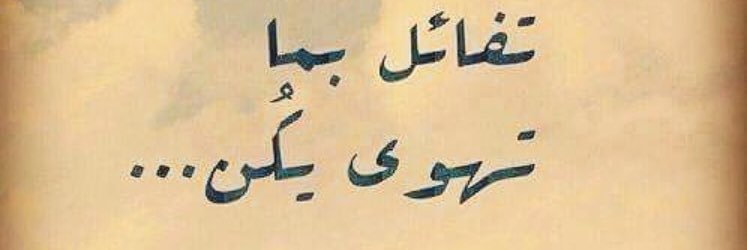 تفائل بما
تهوى يكُن...